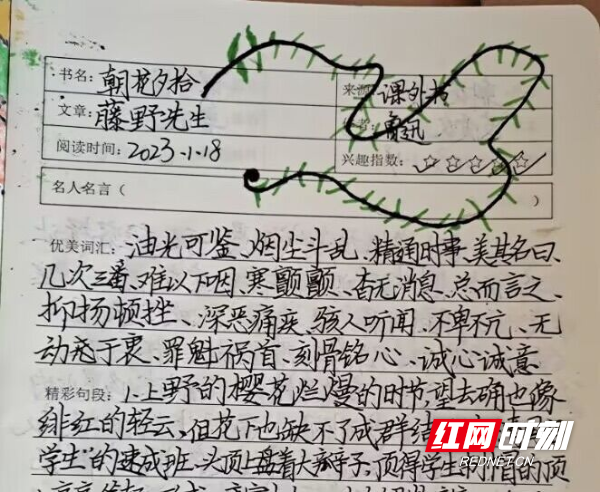 书名：朝花夕拾
来源：课外书
文章：藤野先生
作者：鲁迅
阅读时间：2023.1.18
兴趣指数：☆☆☆☆☆
名人名言（ ）
优美词汇：油光可鉴、烟尘斗乱、精通时事、美其名曰、
几次三番、难以下咽、寒颤颤、杳无消息、总而言之、
抑扬顿挫、深恶痛疾、骇人听闻、不卑不亢、无
动于衷、罪魁祸首、刻骨铭心、诚心诚意
精彩句段：1.上野的樱花烂熳的时节，望去确也像
绯红的轻云，但花下也缺不了成群结
学生"的速成班，头顶上盘着大辫子，顶得学生制帽的顶
红网时刻
REDNET.CN